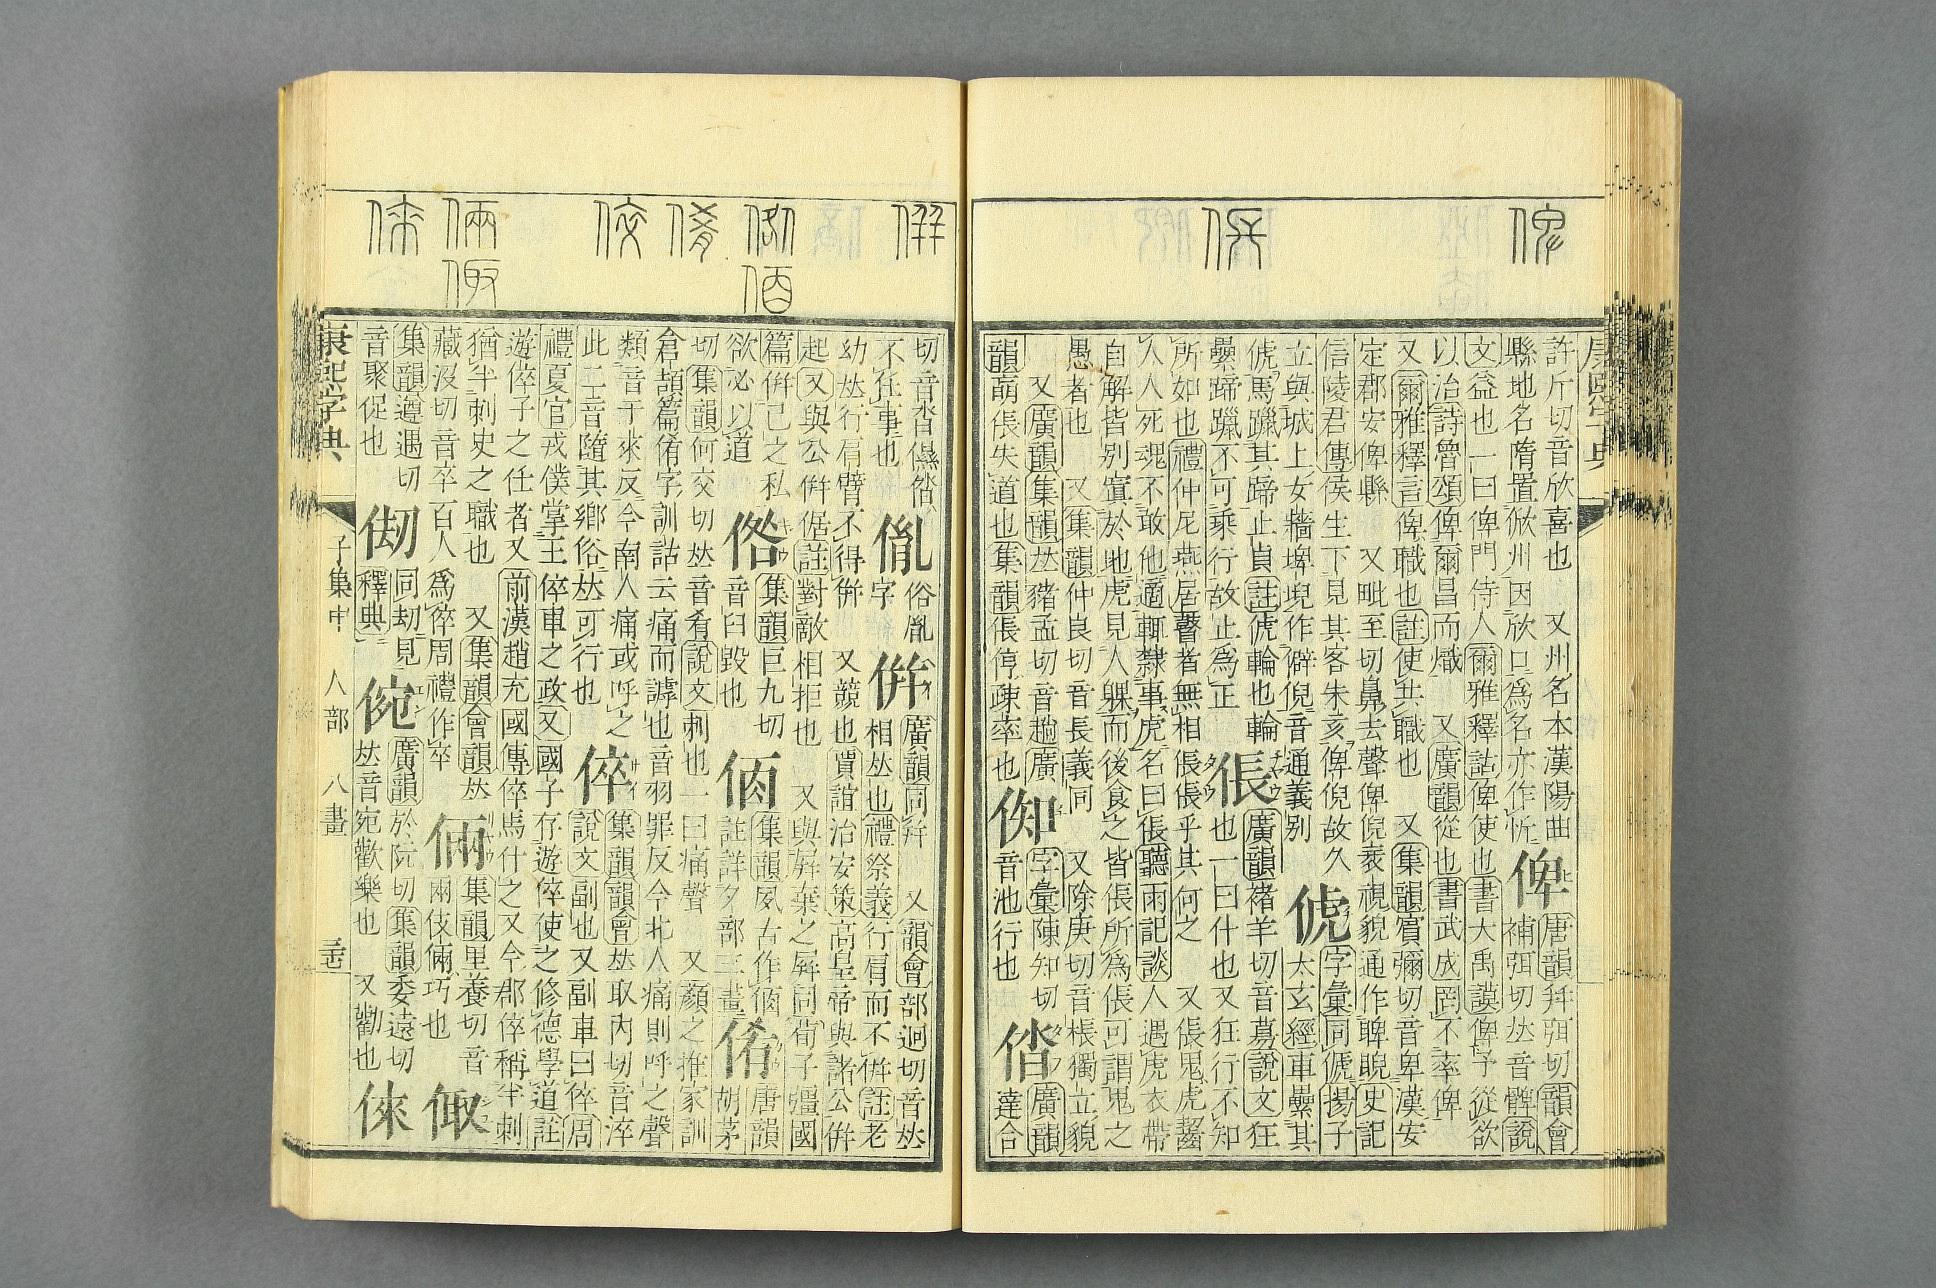 許斤切音欣喜也 又州名本漢陽曲
縣地名隋置炊州因炊口爲名亦作忻 俾 唐韻幷弭切韻會
補弭切𠀤音髀說
文益也一曰俾門侍人爾雅釋詁俾使也書大禹謨俾予從欲
以治詩魯頌俾爾昌而熾 又廣韻從也書武成罔不率俾
又爾雅釋言俾職也註使共職也 又集韻賓彌切音卑漢安
定郡安俾縣 又毗至切鼻去聲俾倪衺視貌通作睥睨史記
信陵君傳侯生下見其客朱亥俾倪故久 俿 字彙同傂揚子
太玄經車纍其
立與城上女牆埤堄作僻倪音通義別
俿馬躐其蹄止貞註俿輪也輪 倀 廣韻褚羊切音募說文狂
也一曰什也又狂行不知
纍蹄躐不可乘行故止爲正
所如也禮仲尼燕居瞽者無相倀倀乎其何之 又倀鬼虎齧
人人死魂不敢他適輒隸事虎名曰倀聽雨記談人遇虎衣帶
自解皆別寘於地虎見人躶而後食之皆倀所爲倀可謂鬼之
愚者也 又集韻仲良切音長義同 又除庚切音棖獨立貌
又廣韻集韻𠀤豬孟切音趟廣 倁 字彙陳知切
音池行也 㑥 廣韻
達合
韻萠倀失道也集韻倀㑏疎率也
切音沓儑㑥
不任事也 㑻 俗胤
字 倂 廣韻同幷 又韻會部迥切音𠀤
相𠀤也禮祭義行肩而不倂註老
幼𠀤行肩臂不得倂 又競也賈誼治安策高皇帝與諸公倂
起又與公倂倨註對敵相拒也 又與屛棄之屛同荀子彊國
篇倂己之私
欲必以道 倃 集韻巨九切
音臼毀也 㑉 集韻夙古作㑉
註詳夕部三畫 倄 唐韻
胡茅
切集韻何交切𠀤音肴說文刺也一曰痛聲 又顏之推家訓
倉頡篇倄字訓詁云痛而謼也音羽罪反今北人痛則呼之聲
類音于來反今南人痛或呼之
此二音隨其鄕俗𠀤可行也 倅 集韻韻會𠀤取內切音淬
說文副也又副車曰倅周
禮夏官戎僕掌王倅車之政又國子存遊倅使之修德學道註
遊倅子之任者又前漢趙充國傳倅馬什之又今郡倅稱半刺
猶半刺史之職也 又集韻會韻𠀤
藏沒切音卒百人爲倅周禮作卒 倆 集韻里養切音
兩伎倆巧也 㑔
集韻遵遇切
音聚促也 㓞 同刧見
釋典 倇 廣韻於阮切集韻委遠切
𠀤音宛歡樂也 又勸也 倈
康熙字典
子集中 人部 八畫